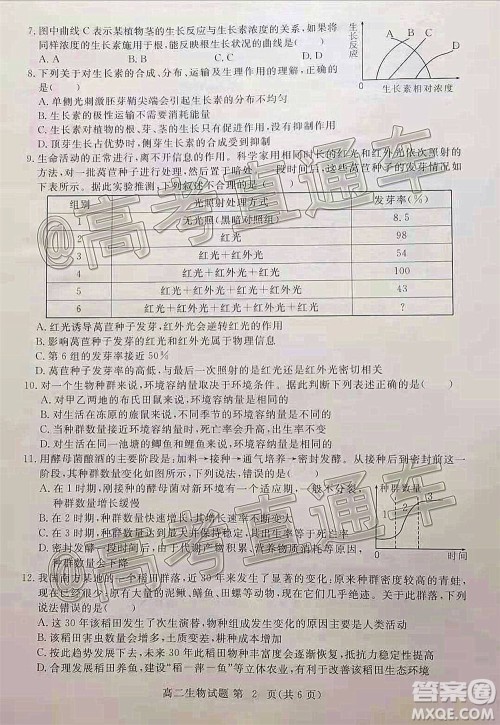 7.图中曲线 C 表示某植物茎的生长反应与生长素浓度的关系,如果将
同样浓度的生长素施用于根,能反映根生长状况的曲线是(　　)
A. A　　B. B　　C. C　　D. D
生长反应
A B C D
生长素相对浓度
8.下列关于对生长素的合成、分布、运输及生理作用的理解,正确的是(　　)
A. 单侧光刺激胚芽鞘尖端会引起生长素的分布不均匀
B. 生长素的极性运输不需要消耗能量
C. 生长素对植物的根、芽、茎的生长只有促进作用
D. 顶芽生长占优势时,侧芽生长素的合成受到抑制
9.生命活动的正常进行,离不开信息的作用。科学家用相同时长的红光和红外光依次照射的
方法,对一批莴苣种子进行处理,然后置于暗处。一段时间后,这些莴苣种子的发芽情况如
下表所示。据此实验推测,下列叙述不合理的是(　　)
组别 光照射处理方式 发芽率(%)
1 无光照(黑暗对照组) 8.5
2 红光 98
3 红光+红外光 54
4 红光+红外光+红光 100
5 红光+红外光+红光+红外光 43
6 红光+红外光+红光+红外光+红光 ?
A. 红光诱导莴苣种子发芽,红外光会逆转红光的作用
B. 影响莴苣种子发芽的红光和红外光属于物理信息
C. 第 6 组的发芽率接近 50%
D. 莴苣种子发芽率的高低,与最后一次照射的是红光还是红外光密切相关
10.对一个生物种群来说,环境容纳量取决于环境条件。据此判断下列表述正确的是(　　)
A. 对甲乙两地的布氏田鼠来说,环境容纳量是相同的
B. 对生活在冻原的旅鼠来说,不同年份的环境容纳量是不同的
C. 当种群数量达到环境容纳量时,其增长速率是最大的
D. 对生活在同一池塘的鲫鱼和鲤鱼来说,环境容纳量是相同的
11.用酵母菌酿酒的主要过程是:加料→接种→通气培养→密封发酵。从接种到密封发酵前这一
阶段,其种群数量变化如图所示。下列说法,错误的是(　　)
A. 在 1 时期,刚接种的酵母菌对新环境有一个适应的过程,所以
种群数量增长缓慢
B. 在 2 时期,种群数量快速增长,其中种群数量为 时,增长速率最大
C. 在 3 时期,种群数量保持稳定,
D. 密封发酵后,由于缺少氧气,种群数量会下降
种群数量
1 2 3
时间
12.我国南方某地的一个稻田群落,近 30 年来发生了显著的变化,原来种群密度较高的青蛙,
现在已变得很少,原有大量的泥鳅、鳝鱼、田螺等动物,现在也几乎见不到。下列有关的叙
说法错误的是(　　)
A. 这个稻田群落近 30 年来发生了次生演替,物种组成发生了很大变化
B. 该稻田中害虫数量会增多,主要是因为出生率增加了
C. 这一趋势如果继续发展,该稻田群落的物种丰富度可能会继续变小
D. 该群落发展稻田养鱼,建立“稻—萍—鱼”立体农业,有利于提高经济效益
高二生物试题 第 2 页(共 6 页)
@高考直通车
@高考直通车
@高考直通车
答案圈
MXQE.COM